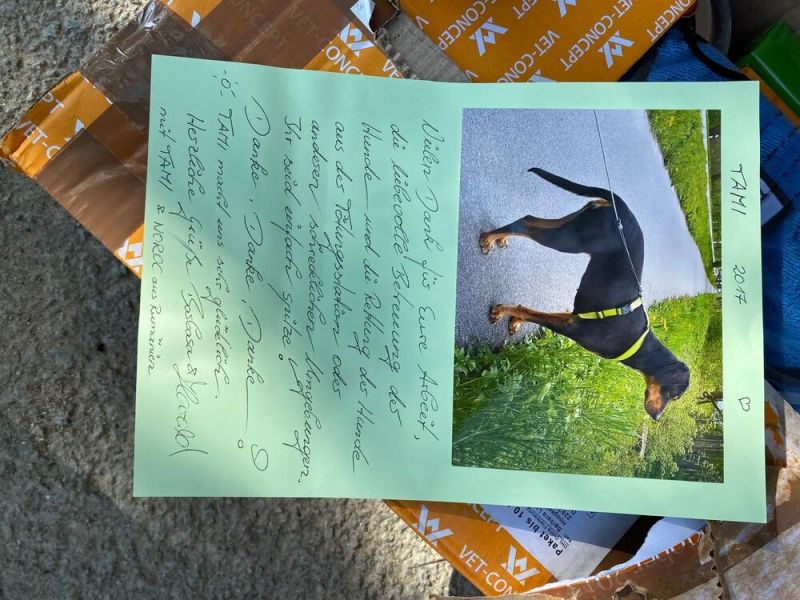 TAMI 2017 ♡
Vielen Dank für Eure Arbeit,
die liebevolle Betreuung der
Hunde und die Rettung der Hunde
aus der Tötungsstation oder
anderen schrecklichen Umgebungen.
Ihr seid einfach spitze!
Danke, Danke, Danke
TAMI macht uns sehr glücklich.
Herzliche Grüße &
mit TAMI & NOROC aus Rumänien
VET-CONCEPT
VET-CONCEPT
VET-CONCEPT
VET-CON
Paket bis 10